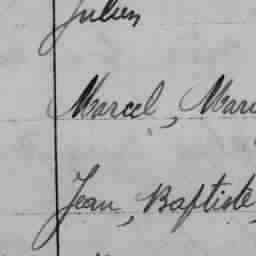 Julien
Marcel, Mari
Jean, Baptiste,